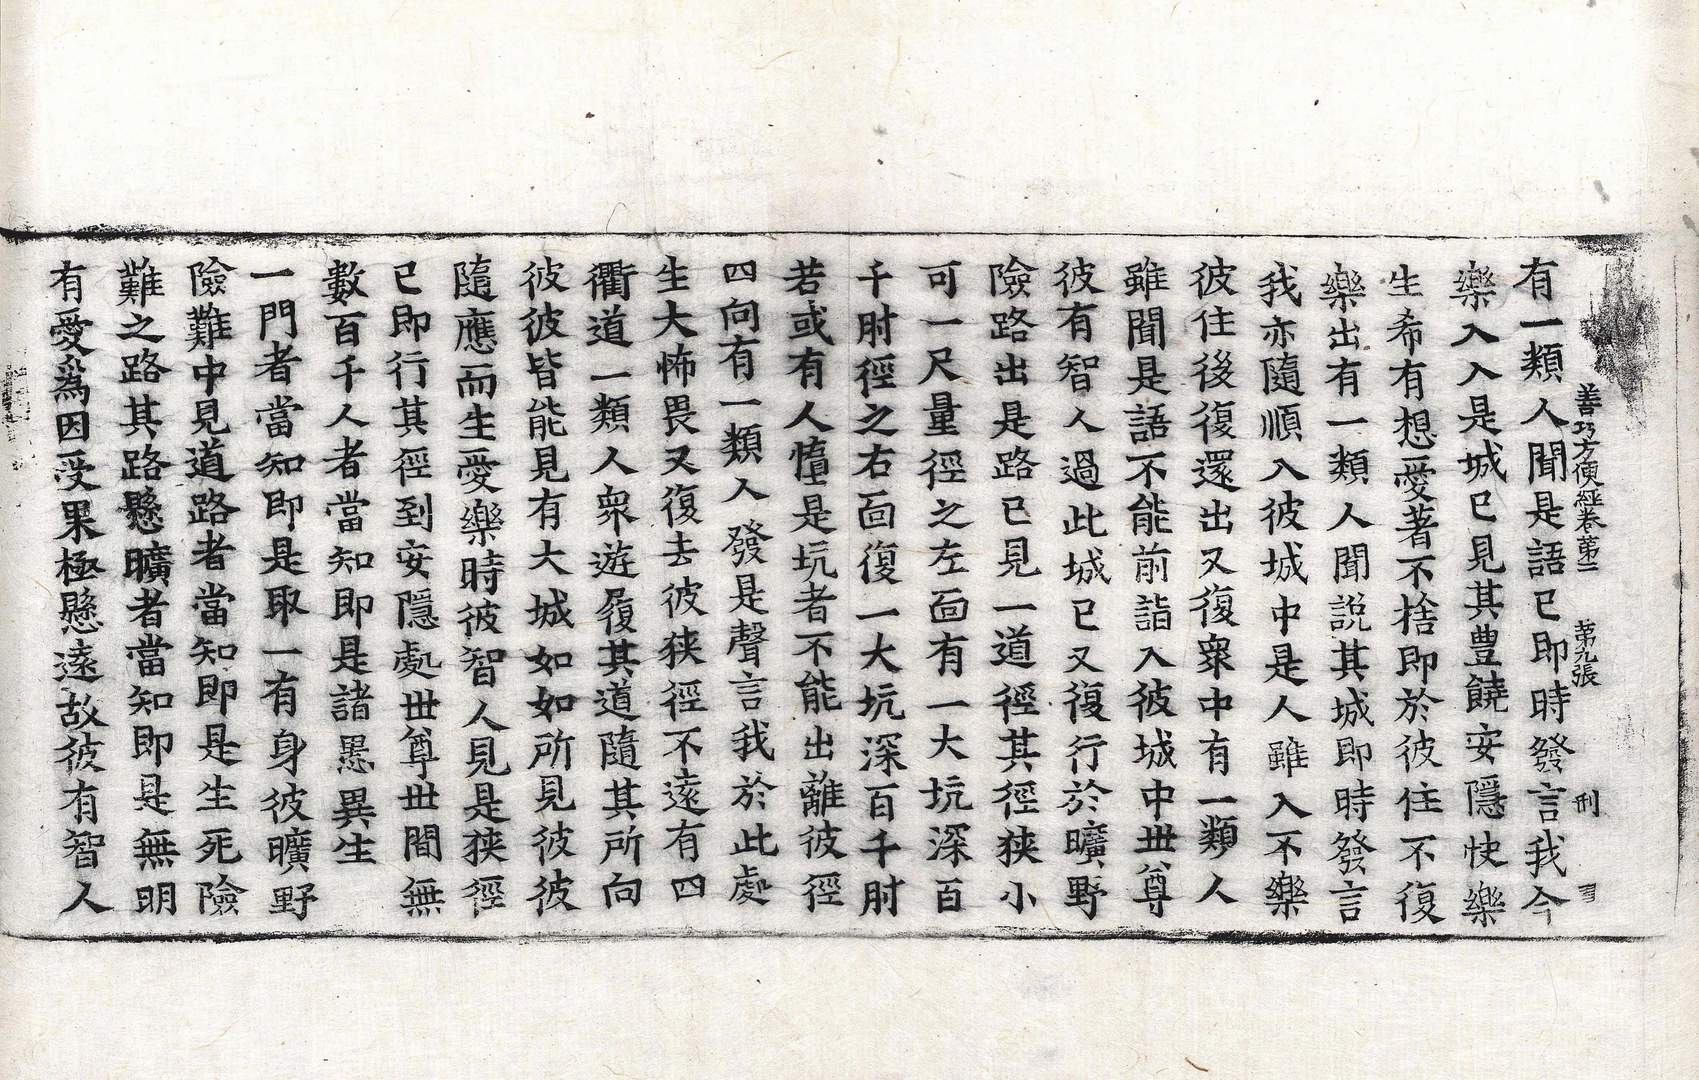 善巧方便經卷第二 第九張 刑
有一類人聞是語已即時發言我今
樂入入是城已見其豊饒安隱快樂
生希有想愛著不捨即於彼住不復
樂出有一類人聞說其城即時發言
我亦隨順入彼城中是人雖入不樂
彼住後復還出又復衆中有一類人
雖聞是語不能前詣入彼城中世尊
彼有智人過此城已又復行於曠野
險路出是路已見一道徑其徑狹小
可一尺量徑之左面有一大坑深百
千肘徑之右面復一大坑深百千肘
若或有人墮是坑者不能出離彼徑
四向有一類人發是聲言我於此處
生大怖畏又復去彼狹徑不遠有四
衢道一類人衆遊履其道隨其所向
彼彼皆能見有大城如如所見彼彼
隨應而生愛樂時彼智人見是狹徑
已即行其徑到安隱處世尊世間無
數百千人者當知即是諸愚異生
一門者當知即是取一有身彼曠野
險難中見道路者當知即是生死險
難之路其路懸曠者當知即是無明
有愛爲因受果極懸遠故彼有智人